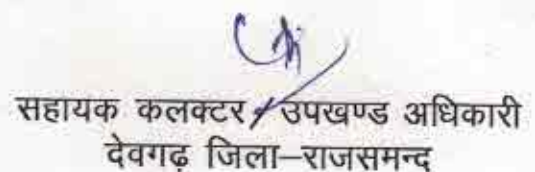 सहायक कलक्टर / उपखण्ड अधिकारी
देवगढ़ जिला–राजसमन्द